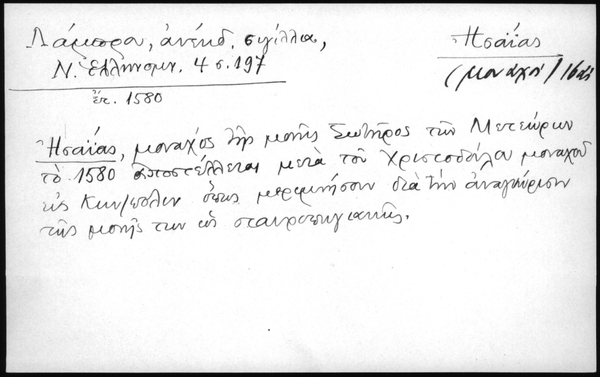 Λάμπρου, ἀνέκδ. σιγίλλια,
Ν. Ἑλληνομν. 4 σ. 197
ἔτ. 1580
Ἠσαΐας
(μοναχοί) 16 αἰ
Ἠσαΐας, μοναχὸς τῆς μονῆς Σωτῆρος τῶν Μετεώρων
τὸ 1580 ἀποστέλλεται μετὰ τοῦ Χριστοδούλου μοναχοῦ
εἰς Κων/πολιν ὅπως μεριμνήσουν διὰ τὴν ἀναγνώρισιν
τῆς μονῆς των ὡς σταυροπηγιακῆς.